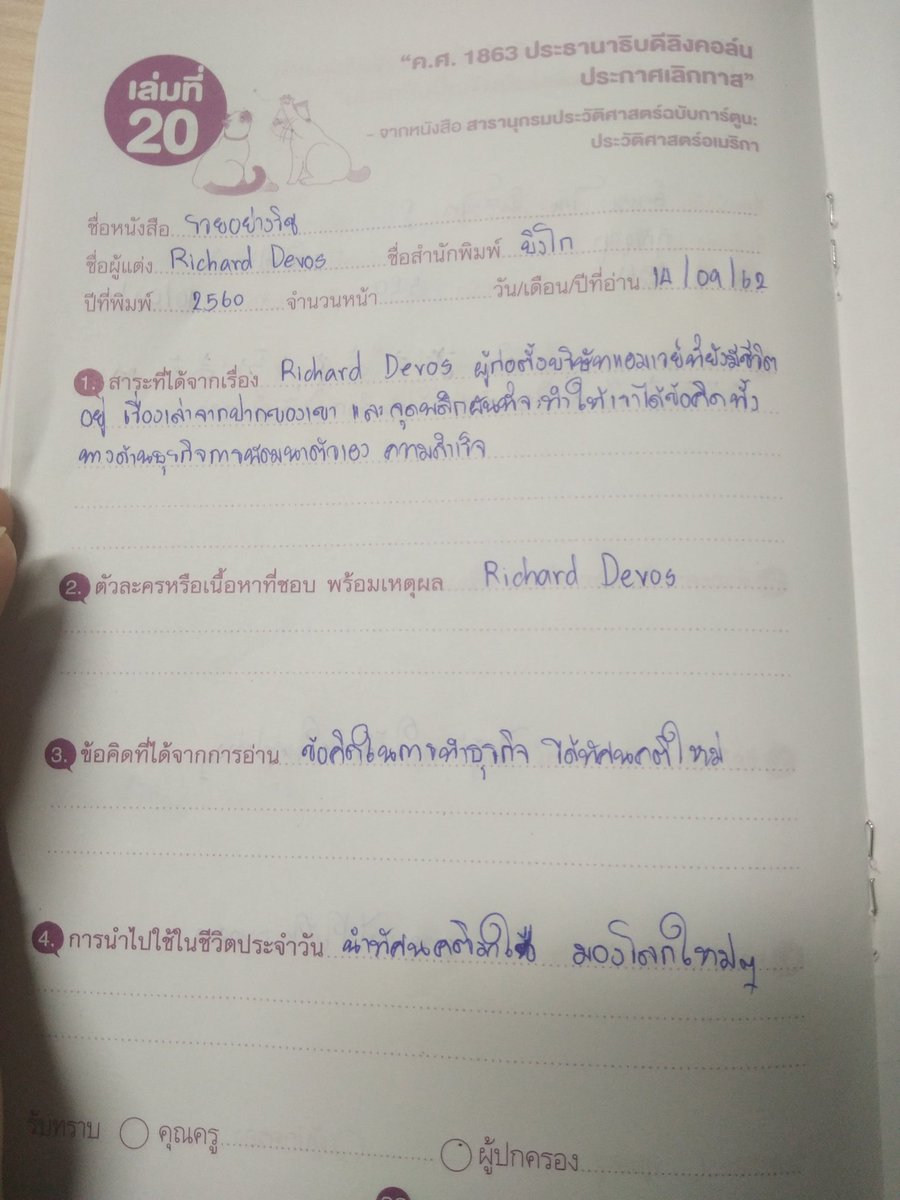 เล่มที่
20
"ค.ศ. 1863 ประธานาธิบดีลิงคอล์น
ประกาศเลิกทาส"
- จากหนังสือ สารานุกรมประวัติศาสตร์ฉบับการ์ตูน:
ประวัติศาสตร์อเมริกา
ชื่อหนังสือ รวยอย่างริช
ชื่อผู้แต่ง Richard Devos ชื่อสำนักพิมพ์ บิงโก
ปีที่พิมพ์ 2560 จำนวนหน้า วัน/เดือน/ปีที่อ่าน 14/09/62
1. สาระที่ได้จากเรื่อง Richard Devos ผู้ก่อตั้งบริษัทแอมเวย์ที่ยังมีชีวิต
อยู่ เรื่องเล่าจากปากของเขา และจุดพลิกผันที่จะทำให้เราได้ข้อคิดทั้ง
ทางด้านธุรกิจการพัฒนาตัวเอง ความสำเร็จ
2. ตัวละครหรือเนื้อหาที่ชอบ พร้อมเหตุผล Richard Devos
3. ข้อคิดที่ได้จากการอ่าน ข้อคิดในการทำธุรกิจ ได้ทัศนคติใหม่
4. การนำไปใช้ในชีวิตประจำวัน นำทัศนคติ มองโลกใหม่ๆ
รับทราบ คุณครู ผู้ปกครอง